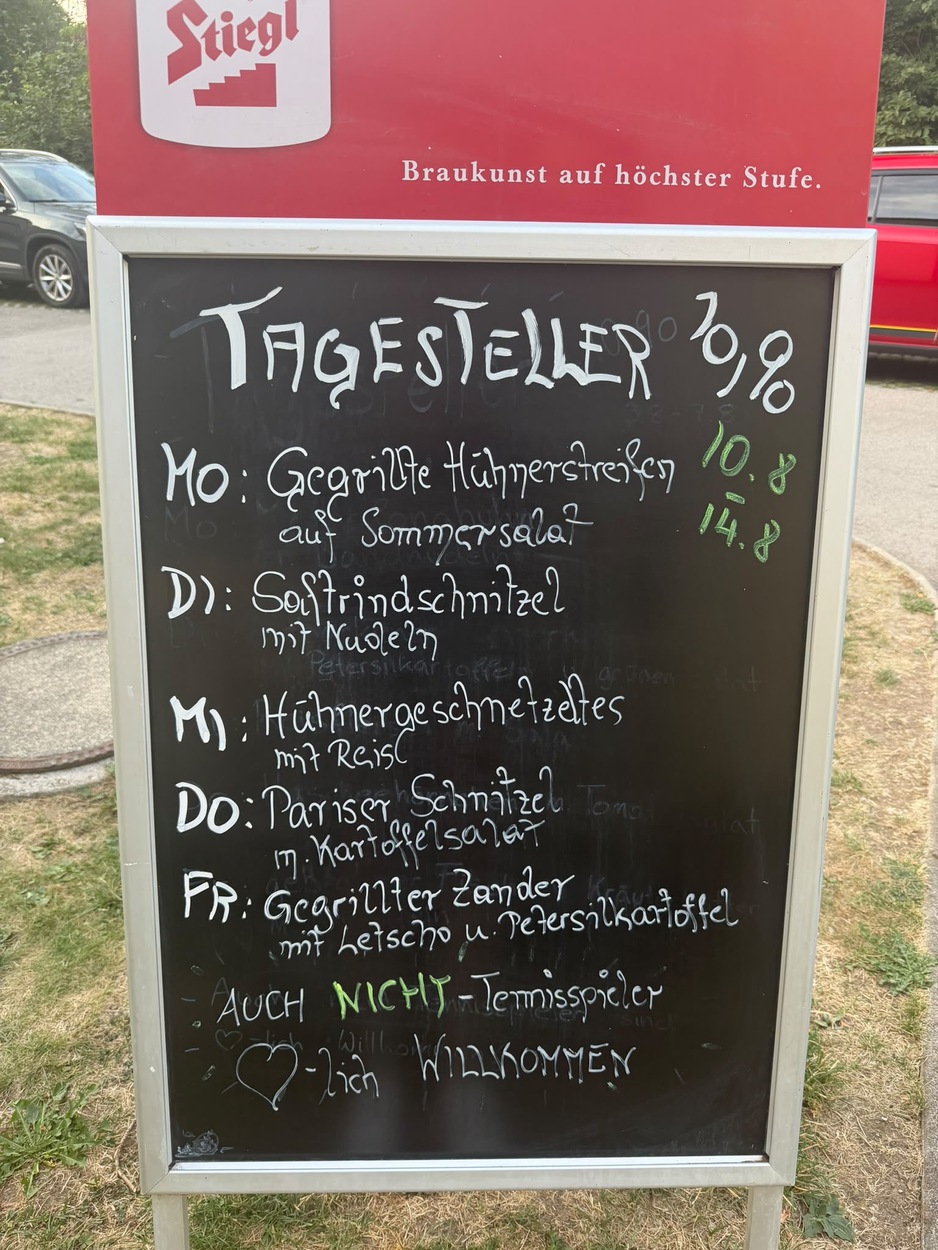 Stiegl
Braukunst auf höchster Stufe.
TAGESTELLER 10,90
10.8
-
14.8
MO: Gegrillte Hühnerstreifen
auf Sommersalat
DI: Saftrindschnitzel
mit Nudeln
MI: Hühnergeschnetzeltes
mit Reis
DO: Pariser Schnitzel
m. Kartoffelsalat
FR: Gegrillter Zander
mit Letscho u. Petersilkartoffel
AUCH NICHT-Tennisspieler
♡-lich WILLKOMMEN